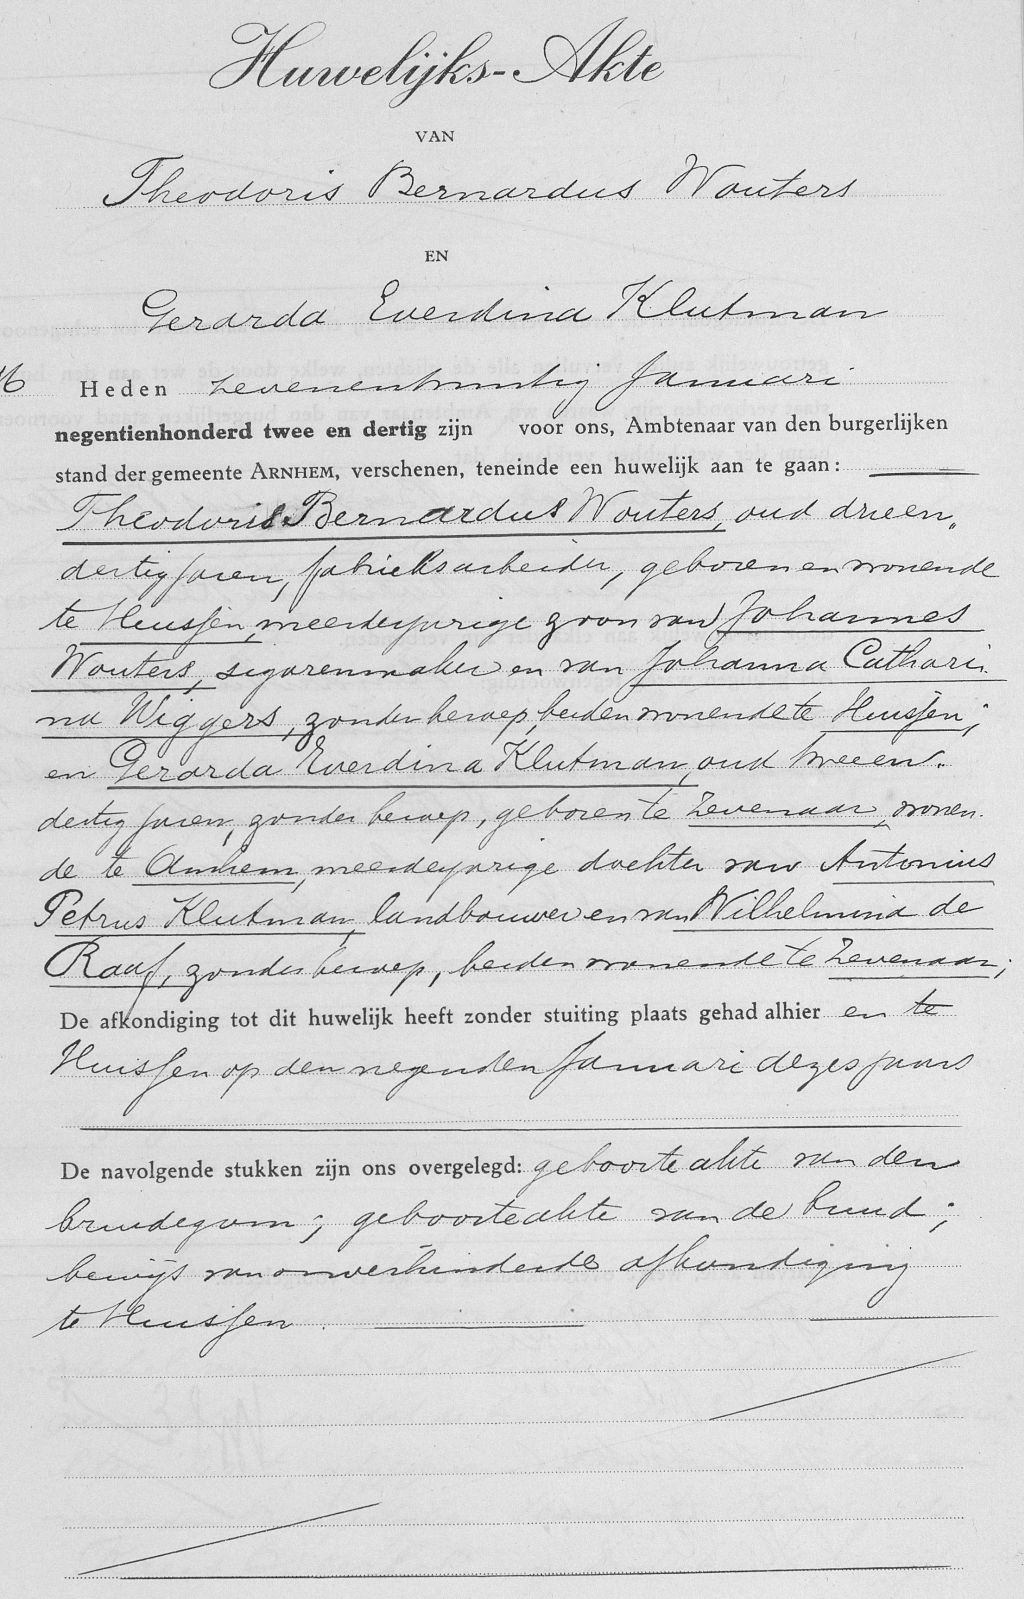 Huwelijks-Akte
VAN
Theodoris Bernardus Wouters
EN
Gerarda Everdina Klutman
Heden zevenentwintig Januari
negentienhonderd twee en dertig zijn voor ons, Ambtenaar van den burgerlijken
stand der gemeente ARNHEM, verschenen, teneinde een huwelijk aan te gaan:
Theodoris Bernardus Wouters, oud drieen„
dertig jaren, fabrieksarbeider, geboren en wonende
te Huissen, meerderjarige zoon van Johannes
Wouters, sigarenmaker en van Johanna Cathari„
na Wiggers, zonder beroep, beiden wonende te Huissen;
en Gerarda Everdina Klutman, oud tweeen„
dertig jaren, zonder beroep, geboren te Zevenaar, wonen„
de te Arnhem, meerderjarige dochter van Antonius
Petrus Klutman, landbouwer en van Wilhelmina de
Raaf, zonder beroep, beiden wonende te Zevenaar;
De afkondiging tot dit huwelijk heeft zonder stuiting plaats gehad alhier en te
Huissen op den negenden Januari dezes jaars
De navolgende stukken zijn ons overgelegd: geboorteakte van den
bruidegom; geboorteakte van de bruid;
bewijs van onverhinderde afkondiging
te Huissen.